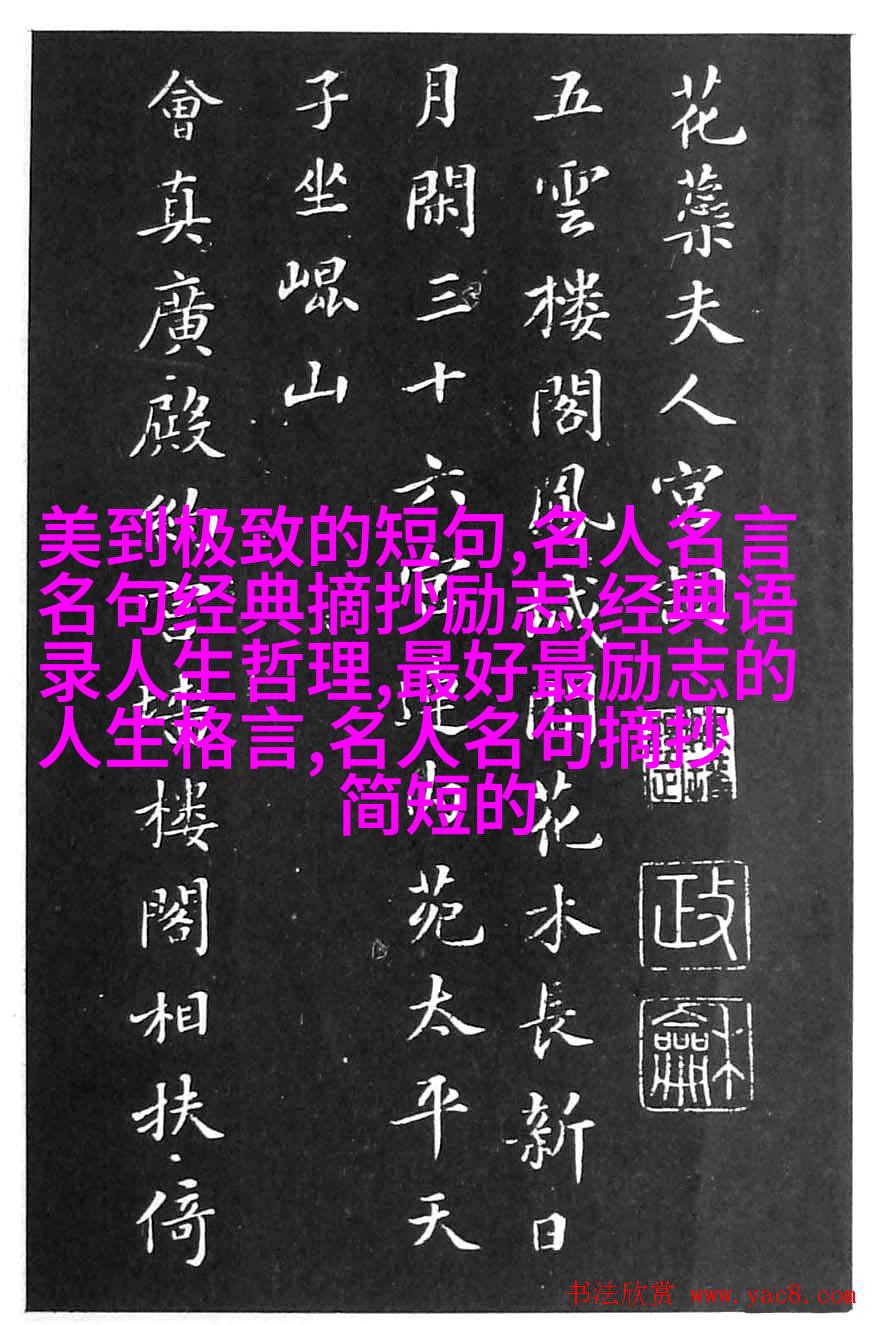 花蘂夫人宮詞
政
龢
五雲楼閣鳳城間花木長新日
月閑三十六宮連内苑太平天
子坐崐山
會真廣殿約宮墻楼閣相扶倚
美到极致的短句,名人名言
名句经典摘抄励志,经典语
录人生哲理,最好最励志的
人生格言,名人名句摘抄
简短的
书法欣赏 www.yac8.com